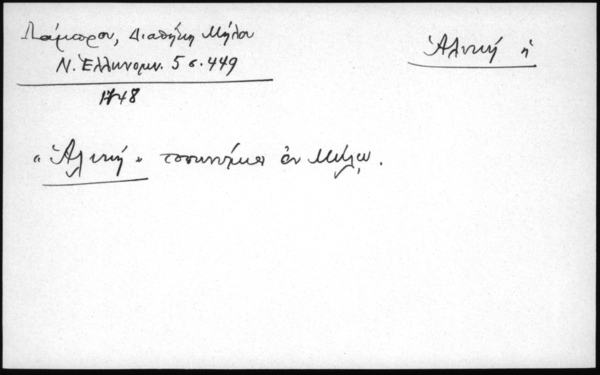 Λάμπρου, Διαθήκη Μήλου
Ν. Ἑλληνομν. 5 σ. 449
1748
Ἁλυκή ἡ
"Ἁλυκή" τοπωνύμιον ἐν Μήλῳ.